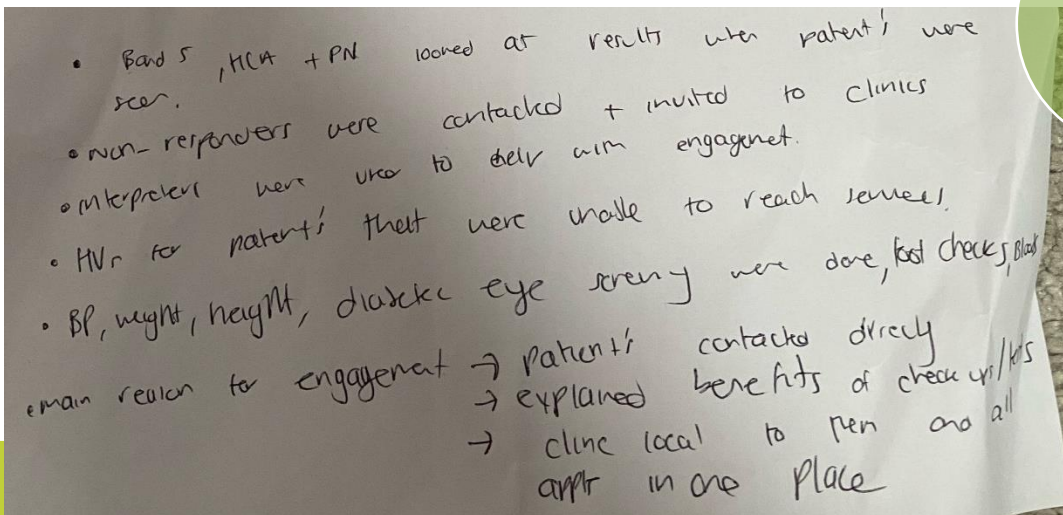 • Band 5, HCA + PN looked at results when patient's were
seen.
• Non-responders were contacted + invited to clinics
• interpreters were used to help with engagemet.
• HVs for patient's that were unable to reach services.
• BP, weight, height, diabetic eye screeny were done, foot checks, Bloods
• main reason for engagement → patient's contacted direcly
→ explained benefits of check ups/
→ clinc local to them and all
appts in one place